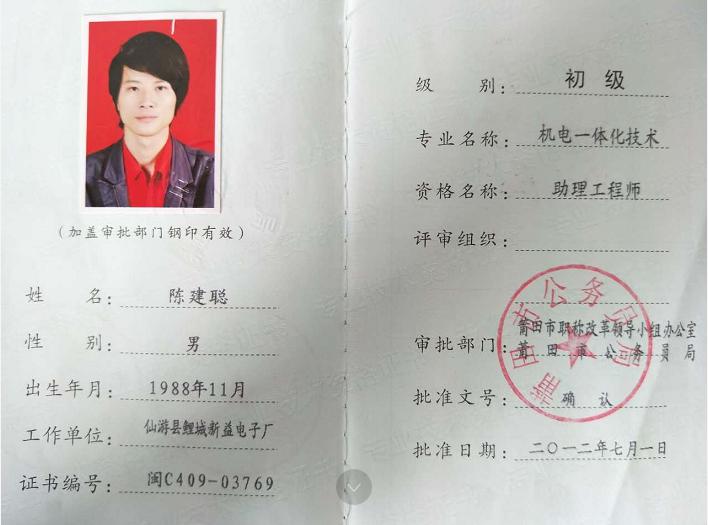 (加盖审批部门钢印有效)
姓 名: 陈建聪
性 别: 男
出生年月: 1988年11月
工作单位: 仙游县鲤城新益电子厂
证书编号: 闽C409-03769
级 别: 初 级
专业名称: 机电一体化技术
资格名称: 助理工程师
评审组织:
审批部门: 莆田市职称改革领导小组办公室
莆田市公务员局
批准文号: 确 认
批准日期: 二〇一二年七月一日
莆田市公务员局